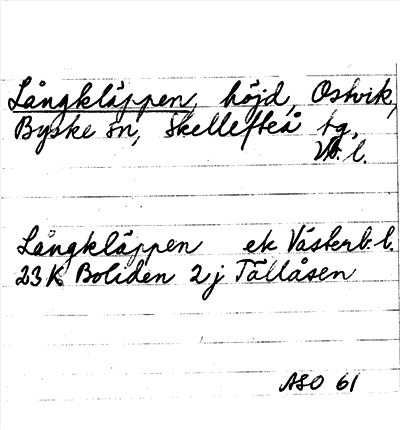 Långkläppen, höjd, Ostvik,
Byske sn, Skellefteå tg,
Vb. l.
Långkläppen ek Västerb. l.
23 K Boliden 2 j Tallåsen
ASO 61